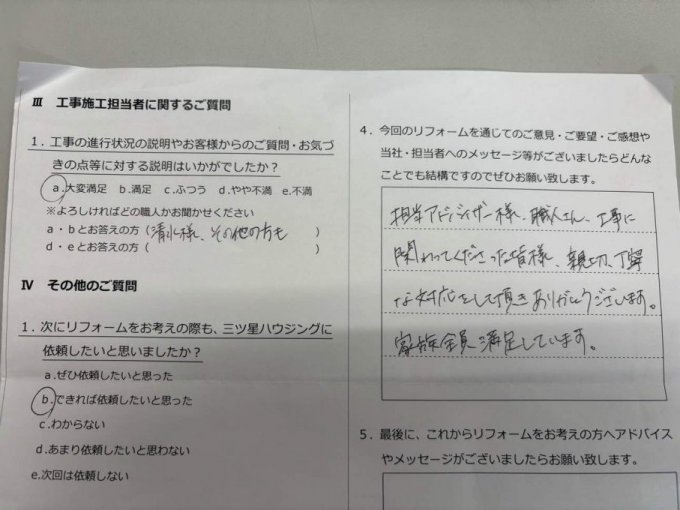 Ⅲ 工事施工担当者に関するご質問
1．工事の進行状況の説明やお客様からのご質問・お気づ
きの点等に対する説明はいかがでしたか？
a.大変満足 b.満足 c.ふつう d.やや不満 e.不満
※よろしければどの職人かお聞かせください
a・bとお答えの方（清水様、その他の方も ）
d・eとお答えの方（ ）
Ⅳ その他のご質問
1．次にリフォームをお考えの際も、三ツ星ハウジングに
依頼したいと思いましたか？
a.ぜひ依頼したいと思った
b.できれば依頼したいと思った
c.わからない
d.あまり依頼したいと思わない
e.次回は依頼しない
4．今回のリフォームを通じてのご意見・ご要望・ご感想や
当社・担当者へのメッセージ等がございましたらどんな
ことでも結構ですのでぜひお願い致します。
担当アドバイザー様、職人さん、工事に
関わってくださった皆様、親切、丁寧
な対応をして頂きありがとうございます。
家族全員満足しています。
5．最後に、これからリフォームをお考えの方へアドバイス
やメッセージがございましたらお願い致します。